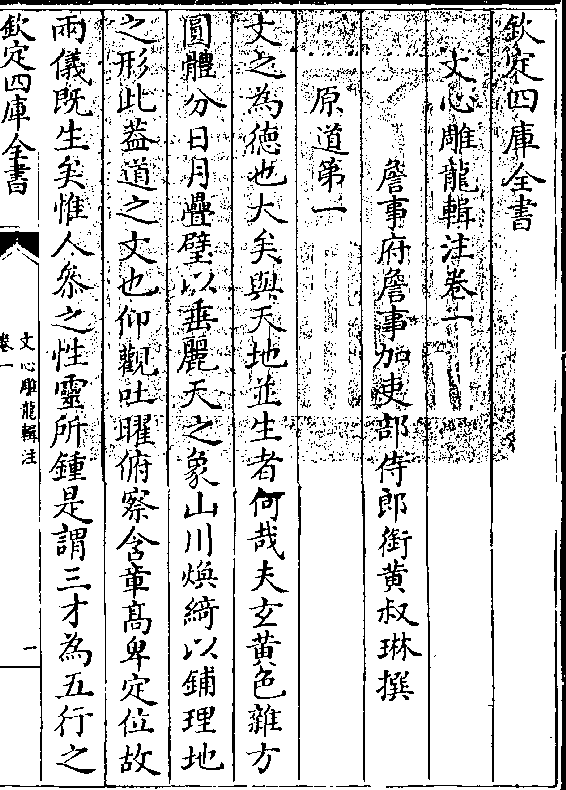 欽定四庫全書
文心雕龍輯注卷一
詹事府詹事加吏部侍郎銜黄叔琳撰
原道第一
文之為德也大矣與天地並生者何哉夫玄黄色雜方
圓體分日月疊璧以垂麗天之象山川煥綺以鋪理地
之形此蓋道之文也仰觀吐曜俯察含章髙卑定位故
兩儀既生矣惟人叅之性靈所鍾是謂三才為五行之
欽定四庫全書
文心雕龍輯注
卷一
一